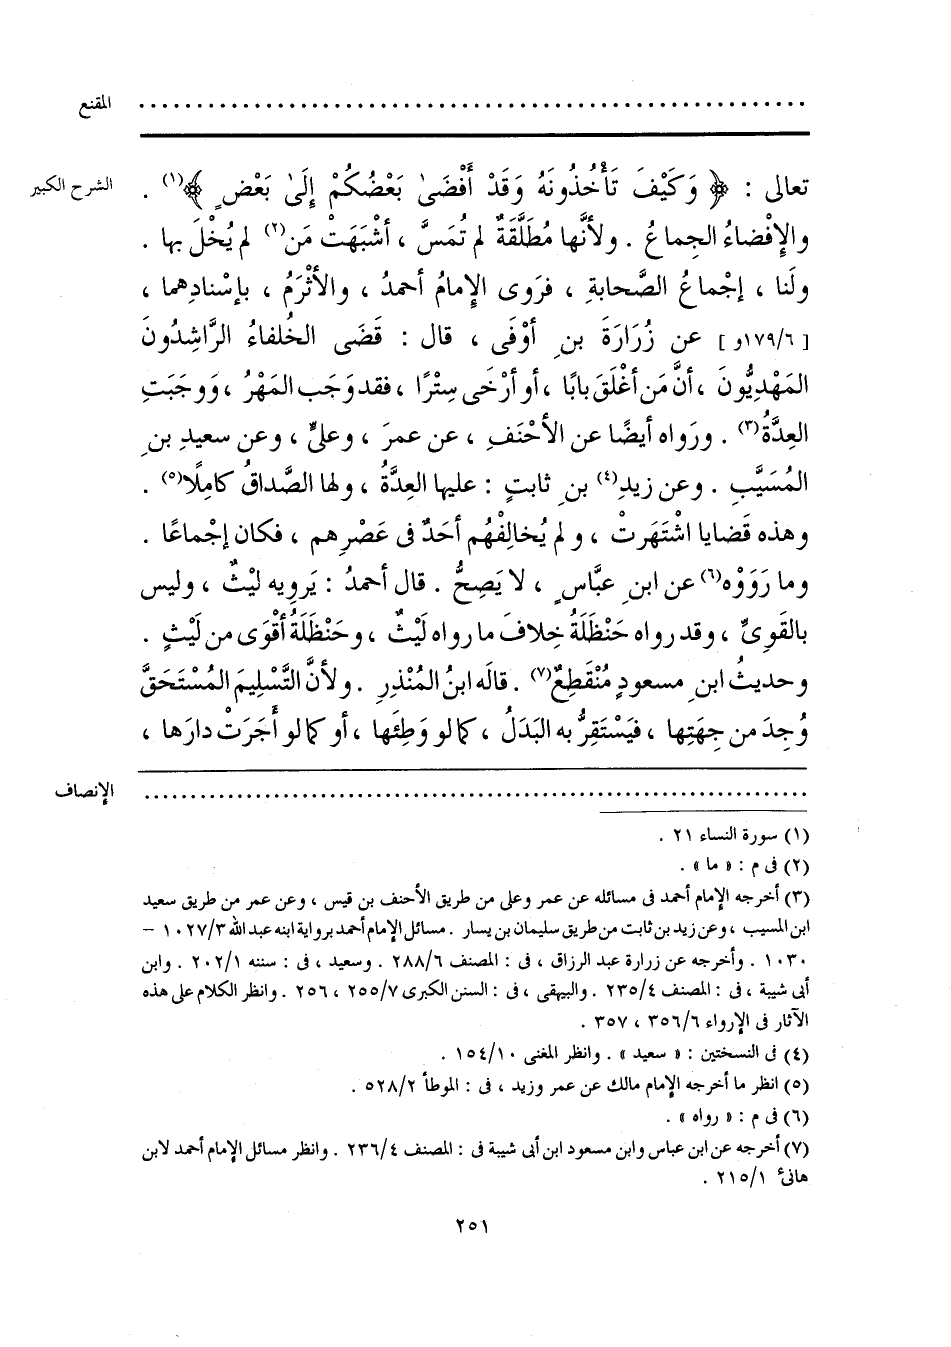 المقنع ........................................................
الشرح الكبير تعالى : ﴿ وَكَيْفَ تَأْخُذُونَهُ وَقَدْ أَفْضَىٰ بَعْضُكُمْ إِلَىٰ بَعْضٍ ﴾(١) .
والإِفْضاءُ الجِماعُ . ولأنَّها مُطَلَّقَةٌ لم تُمَسَّ ، أشْبَهَتْ مَن(٢) لم يُخْلَ بها .
ولَنا ، إجْماعُ الصَّحابةِ ، فرَوى الإِمامُ أحمدُ ، والأثْرَمُ ، بإسْنادِهما ،
[ ١٧٩/٦و ] عن زُرَارَةَ بنِ أوْفَى ، قال : قَضَى الخُلفاءُ الرَّاشِدُونَ
المَهْدِيُّونَ ، أنَّ مَن أغْلَقَ بابًا ، أو أرْخَى سِتْرًا ، فقد وَجَب المَهْرُ ، وَوجَبَتِ
العِدَّةُ(٣) . ورَواه أيضًا عن الأحْنَفِ ، عن عمرَ ، وعليٍّ ، وعن سعيدِ بنِ
المُسَيَّبِ . وعن زيدِ(٤) بنِ ثابتٍ : عليها العِدَّةُ ، ولها الصَّداقُ كامِلًا(٥) .
وهذه قَضايا اشْتَهَرتْ ، ولم يُخالِفْهُم أحَدٌ فى عَصْرِهم ، فكان إجْماعًا .
وما رَوَوْه(٦) عن ابنِ عبَّاسٍ ، لا يَصِحُّ . قال أحمدُ : يَرويه ليْثٌ ، وليس
بالقَوِىِّ ، وقد رواه حَنْظَلَةُ خِلافَ ما رواه لَيْثٌ ، وحَنْظَلَةُ أقْوَى من لَيْثٍ .
وحديثُ ابنِ مسعودٍ مُنْقَطِعٌ(٧) . قالَه ابنُ المُنْذِرِ . ولأنَّ التَّسْلِيمَ المُسْتَحَقَّ
وُجِدَ من جِهَتِها ، فيَسْتَقِرُّ به البَدَلُ ، كما لو وَطِئَها ، أو كما لو أجَرَتْ دارَها ،
الإنصاف ........................................................
(١) سورة النساء ٢١ .
(٢) فى م : « ما » .
(٣) أخرجه الإمام أحمد فى مسائله عن عمر وعلى من طريق الأحنف بن قيس ، وعن عمر من طريق سعيد
ابن المسيب ، وعن زيد بن ثابت من طريق سليمان بن يسار . مسائل الإمام أحمد برواية ابنه عبد الله ١٠٢٧/٣ –
١٠٣٠ . وأخرجه عن زرارة عبد الرزاق ، فى : المصنف ٢٨٨/٦ . وسعيد ، فى : سننه ٢٠٢/١ . وابن
أبى شيبة ، فى : المصنف ٢٣٥/٤ . والبيهقى ، فى : السنن الكبرى ٢٥٥/٧ ، ٢٥٦ . وانظر الكلام على هذه
الآثار فى الإرواء ٣٥٦/٦ ، ٣٥٧ .
(٤) فى النسختين : « سعيد » . وانظر المغنى ١٥٤/١٠ .
(٥) انظر ما أخرجه الإمام مالك عن عمر وزيد ، فى : الموطأ ٥٢٨/٢ .
(٦) فى م : « رواه » .
(٧) أخرجه عن ابن عباس وابن مسعود ابن أبى شيبة فى : المصنف ٢٣٦/٤ . وانظر مسائل الإمام أحمد لابن
هانئ ٢١٥/١ .
٢٥١